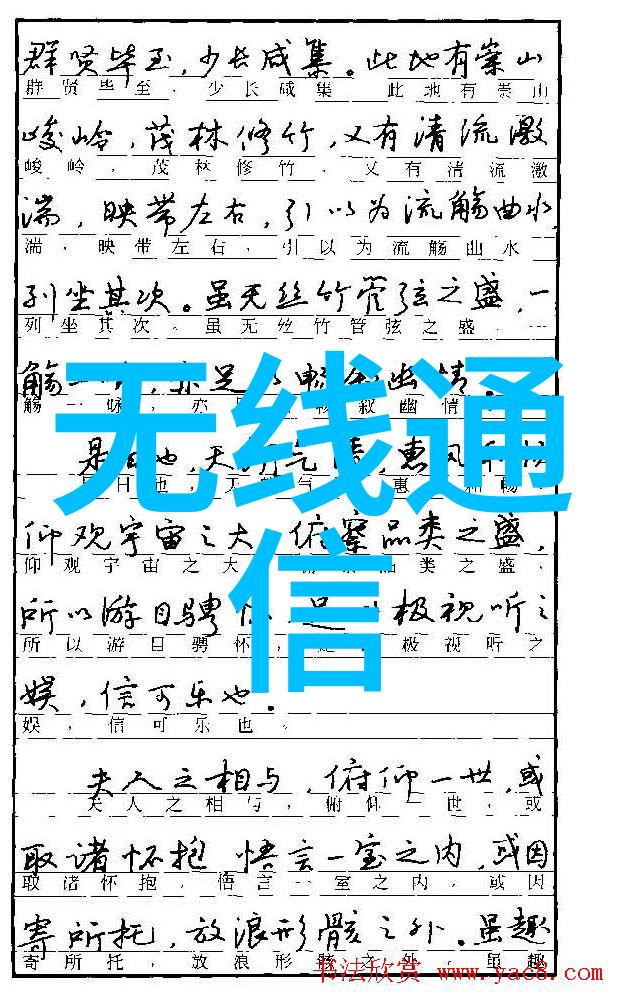 群贤毕至，少长咸集。此地有崇山
群贤毕至，少长咸集 此地有崇山
峻岭，茂林修竹，又有清流激
峻岭，茂林修竹，又有清流激
湍，映带左右，引以为流觞曲水，
湍，映带左右，引以为流觞曲水
列坐其次。虽无丝竹管弦之盛，一
列坐其次。虽无丝竹管弦之盛，一
觞一 亦足 畅叙幽情。
觞一咏，亦 叙幽情
是日也，天朗气清，惠风和畅
是日也，天 气 惠 和畅，
仰观宇宙之大 俯察品类之盛，
仰观宇宙之大 品类之盛，
所以游目骋怀 足以极视听之
所以游目骋怀， 极视听之
娱，信可乐也。
娱，信可乐也。
夫人之相与，俯仰一世，或
夫人之相与，俯仰一世，或
取诸怀抱 悟言一室之内，或因
取诸怀抱，悟言一室之内，或因
寄所托，放浪形骸之外。虽趣
寄所托，放浪形骸之外。虽趣
无线通
信
书法欣赏 www.yac8.com